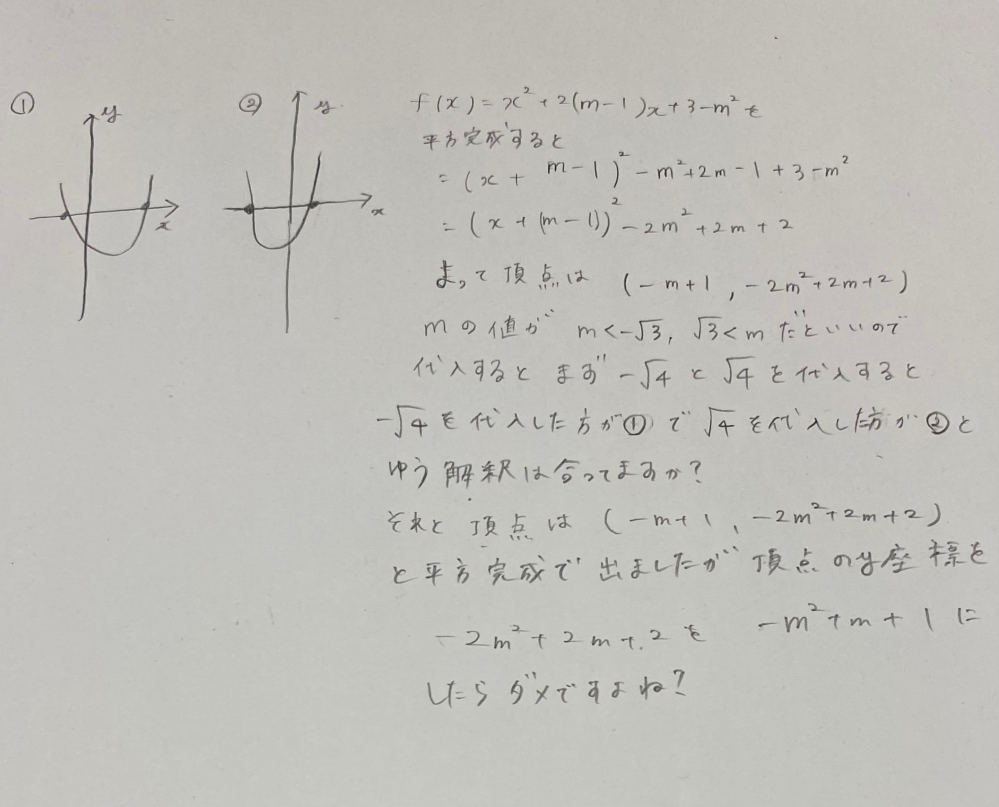 ① y x
② y x
f(x) = x² + 2(m-1)x + 3 - m² を
平方完成すると
= (x + m-1)² - m² + 2m - 1 + 3 - m²
= (x + (m-1))² - 2m² + 2m + 2
よって頂点は (-m+1, -2m²+2m+2)
mの値が m<-√3, √3<m だといいので
代入すると まず -√4 と √4 を代入すると
-√4 を代入した方が①で √4 を代入した方が②と
ゆう解釈は合ってますか?
それと 頂点は (-m+1, -2m²+2m+2)
と平方完成で出ましたが 頂点のy座標を
-2m²+2m+2 を -m²+m+1 に
したらダメですよね?